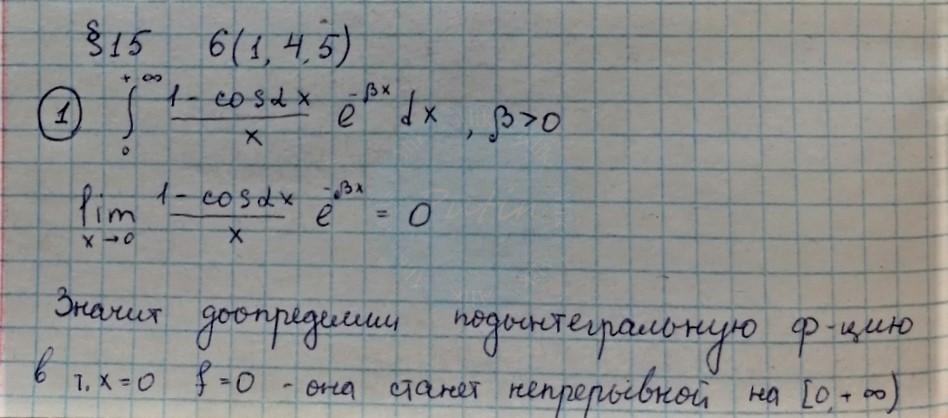 §15 6(1,4,5)
① ∫₀^{+∞} (1 - cos αx)/x e^{-βx} dx , β>0
lim_{x→0} (1 - cos αx)/x e^{-βx} = 0
Значит доопределим подынтегральную ф-цию
в т. x=0 f=0 - она станет непрерывной на [0,+∞)